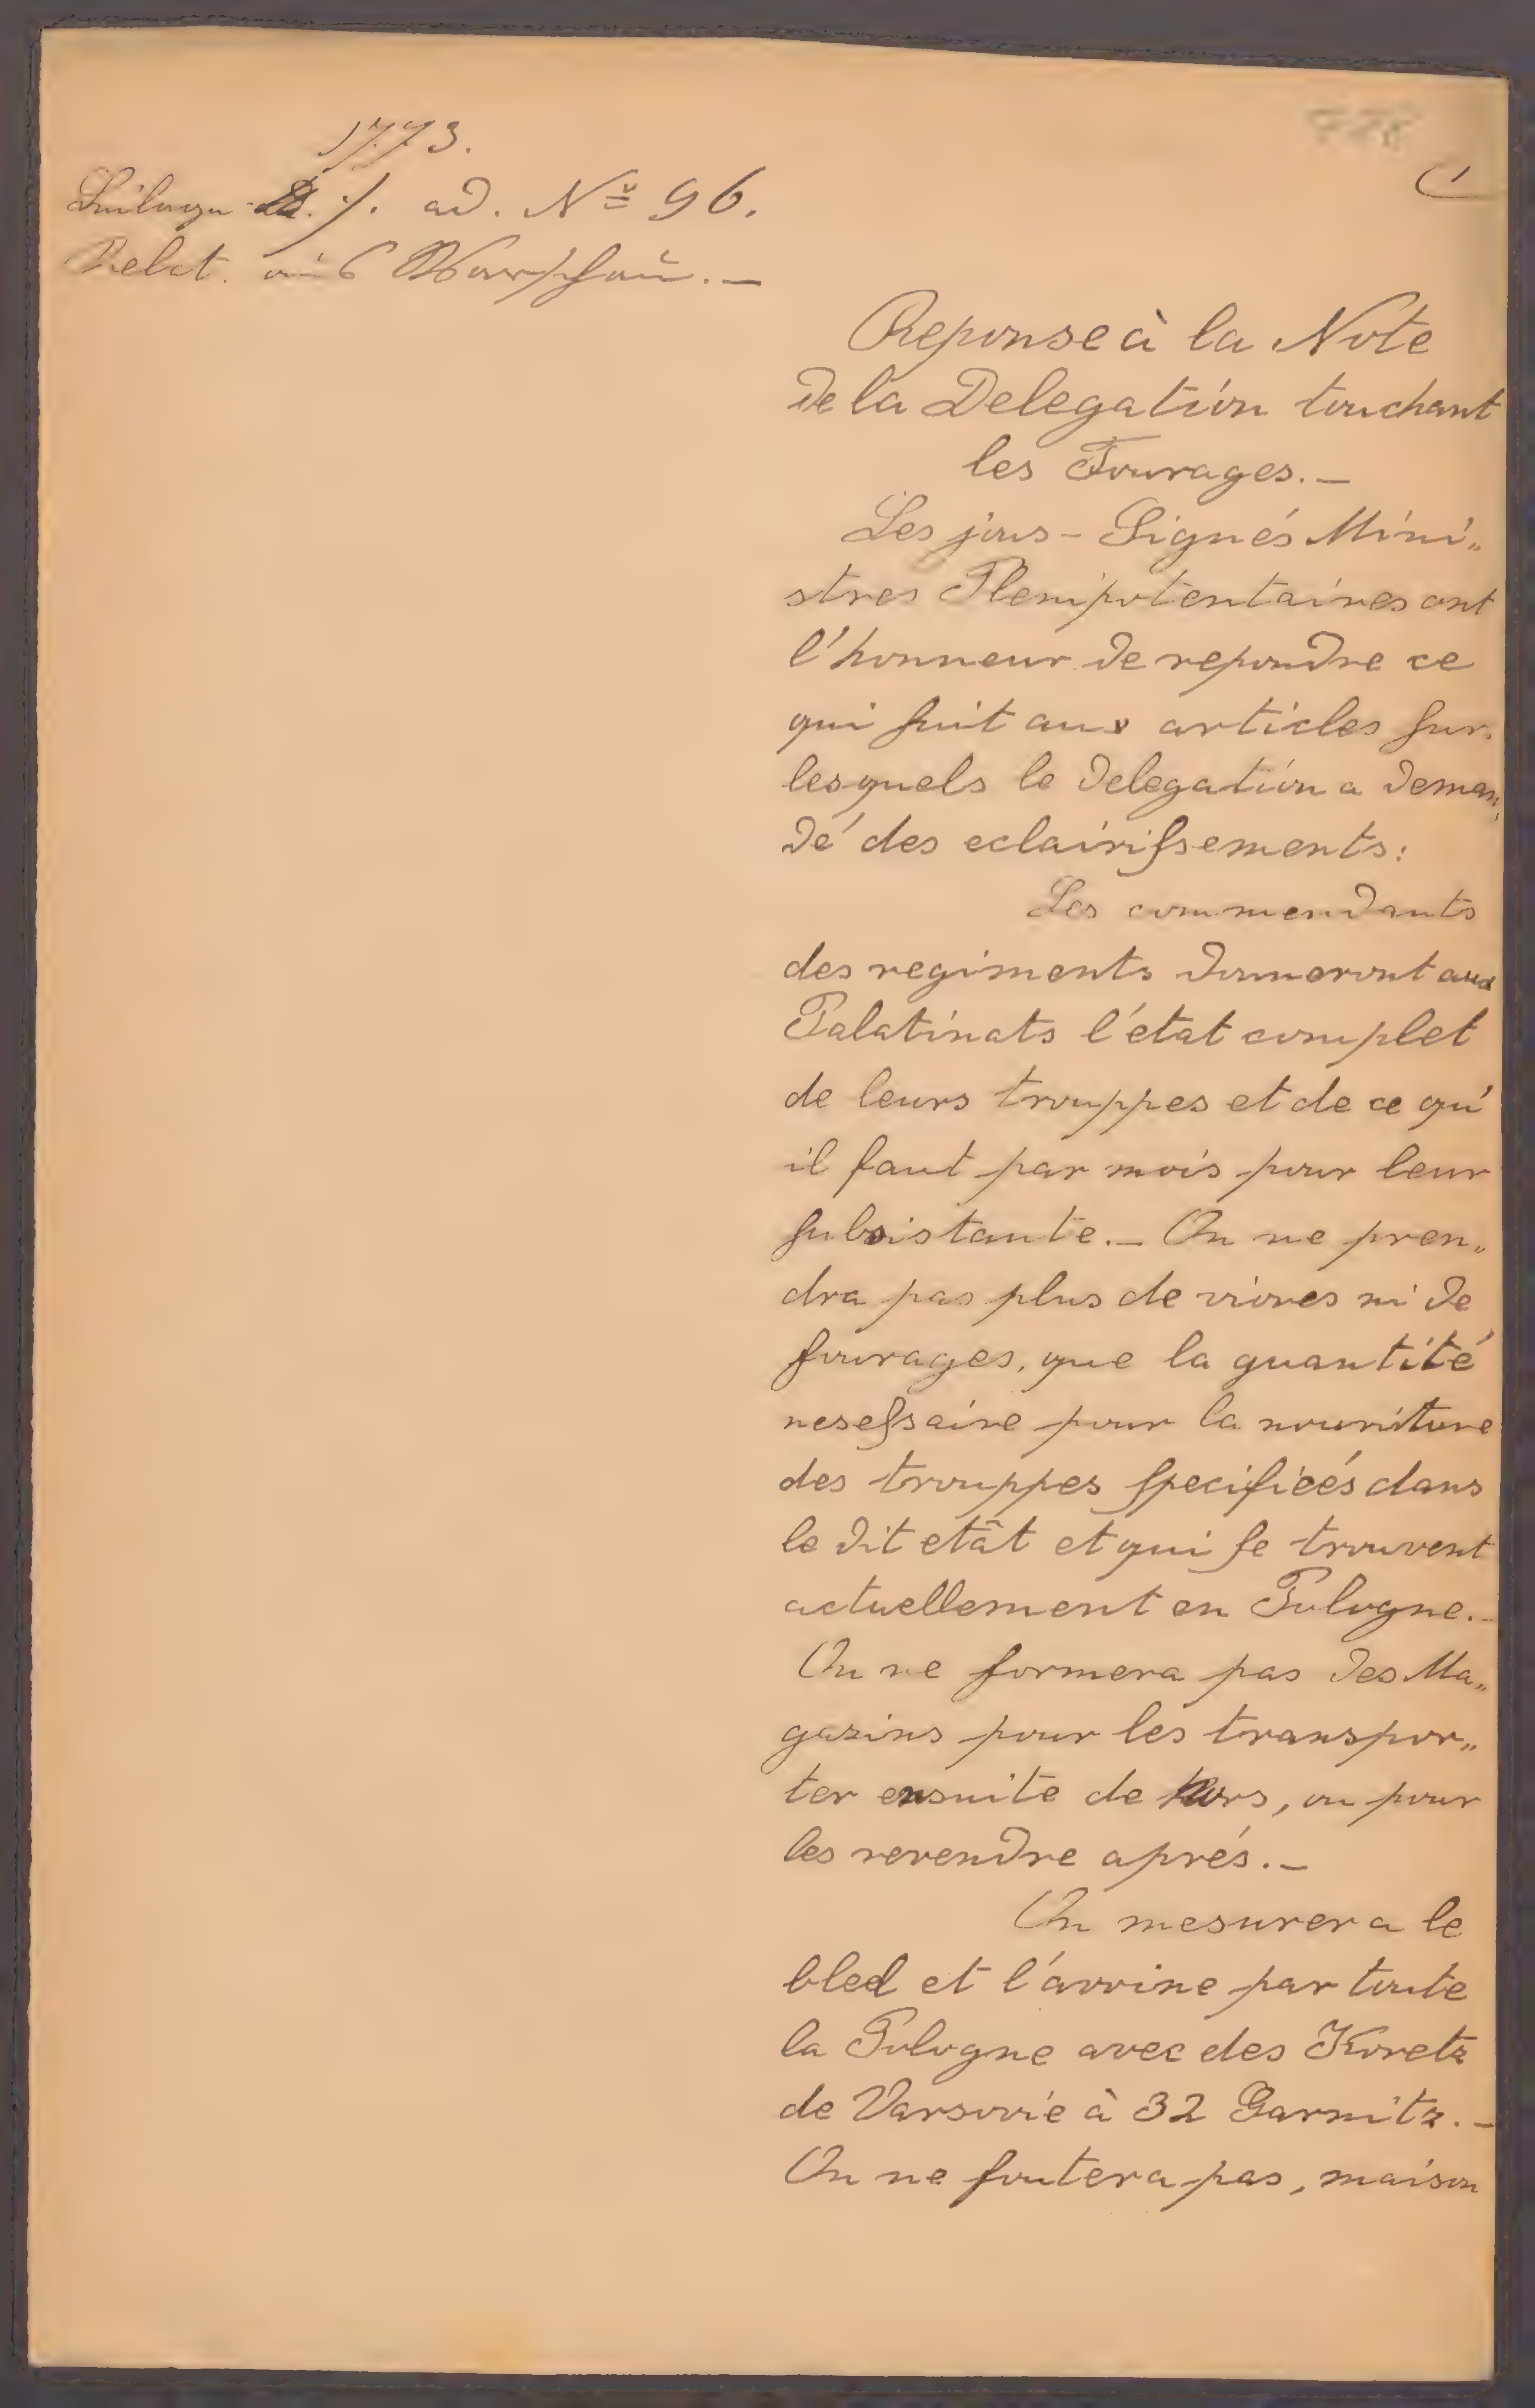 1773.
Beilage ./. ad. Nº 96.
Relat. aus Warschau. —
Reponse à la Note
de la Delegation touchant
les Fourages. —
Les sous-Signés Mini„
stres Plenipotentaires ont
l'honneur de repondre ce
qui suit aux articles sur„
lesquels le Delegation a deman„
dé des eclairissements:
Les commendants
des regiments donneront aux
Palatinats l'état complet
de leurs trouppes et de ce qu'
il faut par mois pour leur
subsistante. — On ne pren„
dra pas plus de vivres ni de
fourages, que la quantité
nesessaire pour la nouriture
des trouppes specificés dans
le dit etât et qui se trouvent
actuellement en Pologne. —
On ne formera pas des Ma„
gazins pour les transpor„
ter ensuite de hors, ou pour
les revendre aprés. —
On mesurera le
bled et l'avoine par toute
la Pologne avec des Koretz
de Varsovie à 32 Garnitz. —
On ne foutera pas, maison